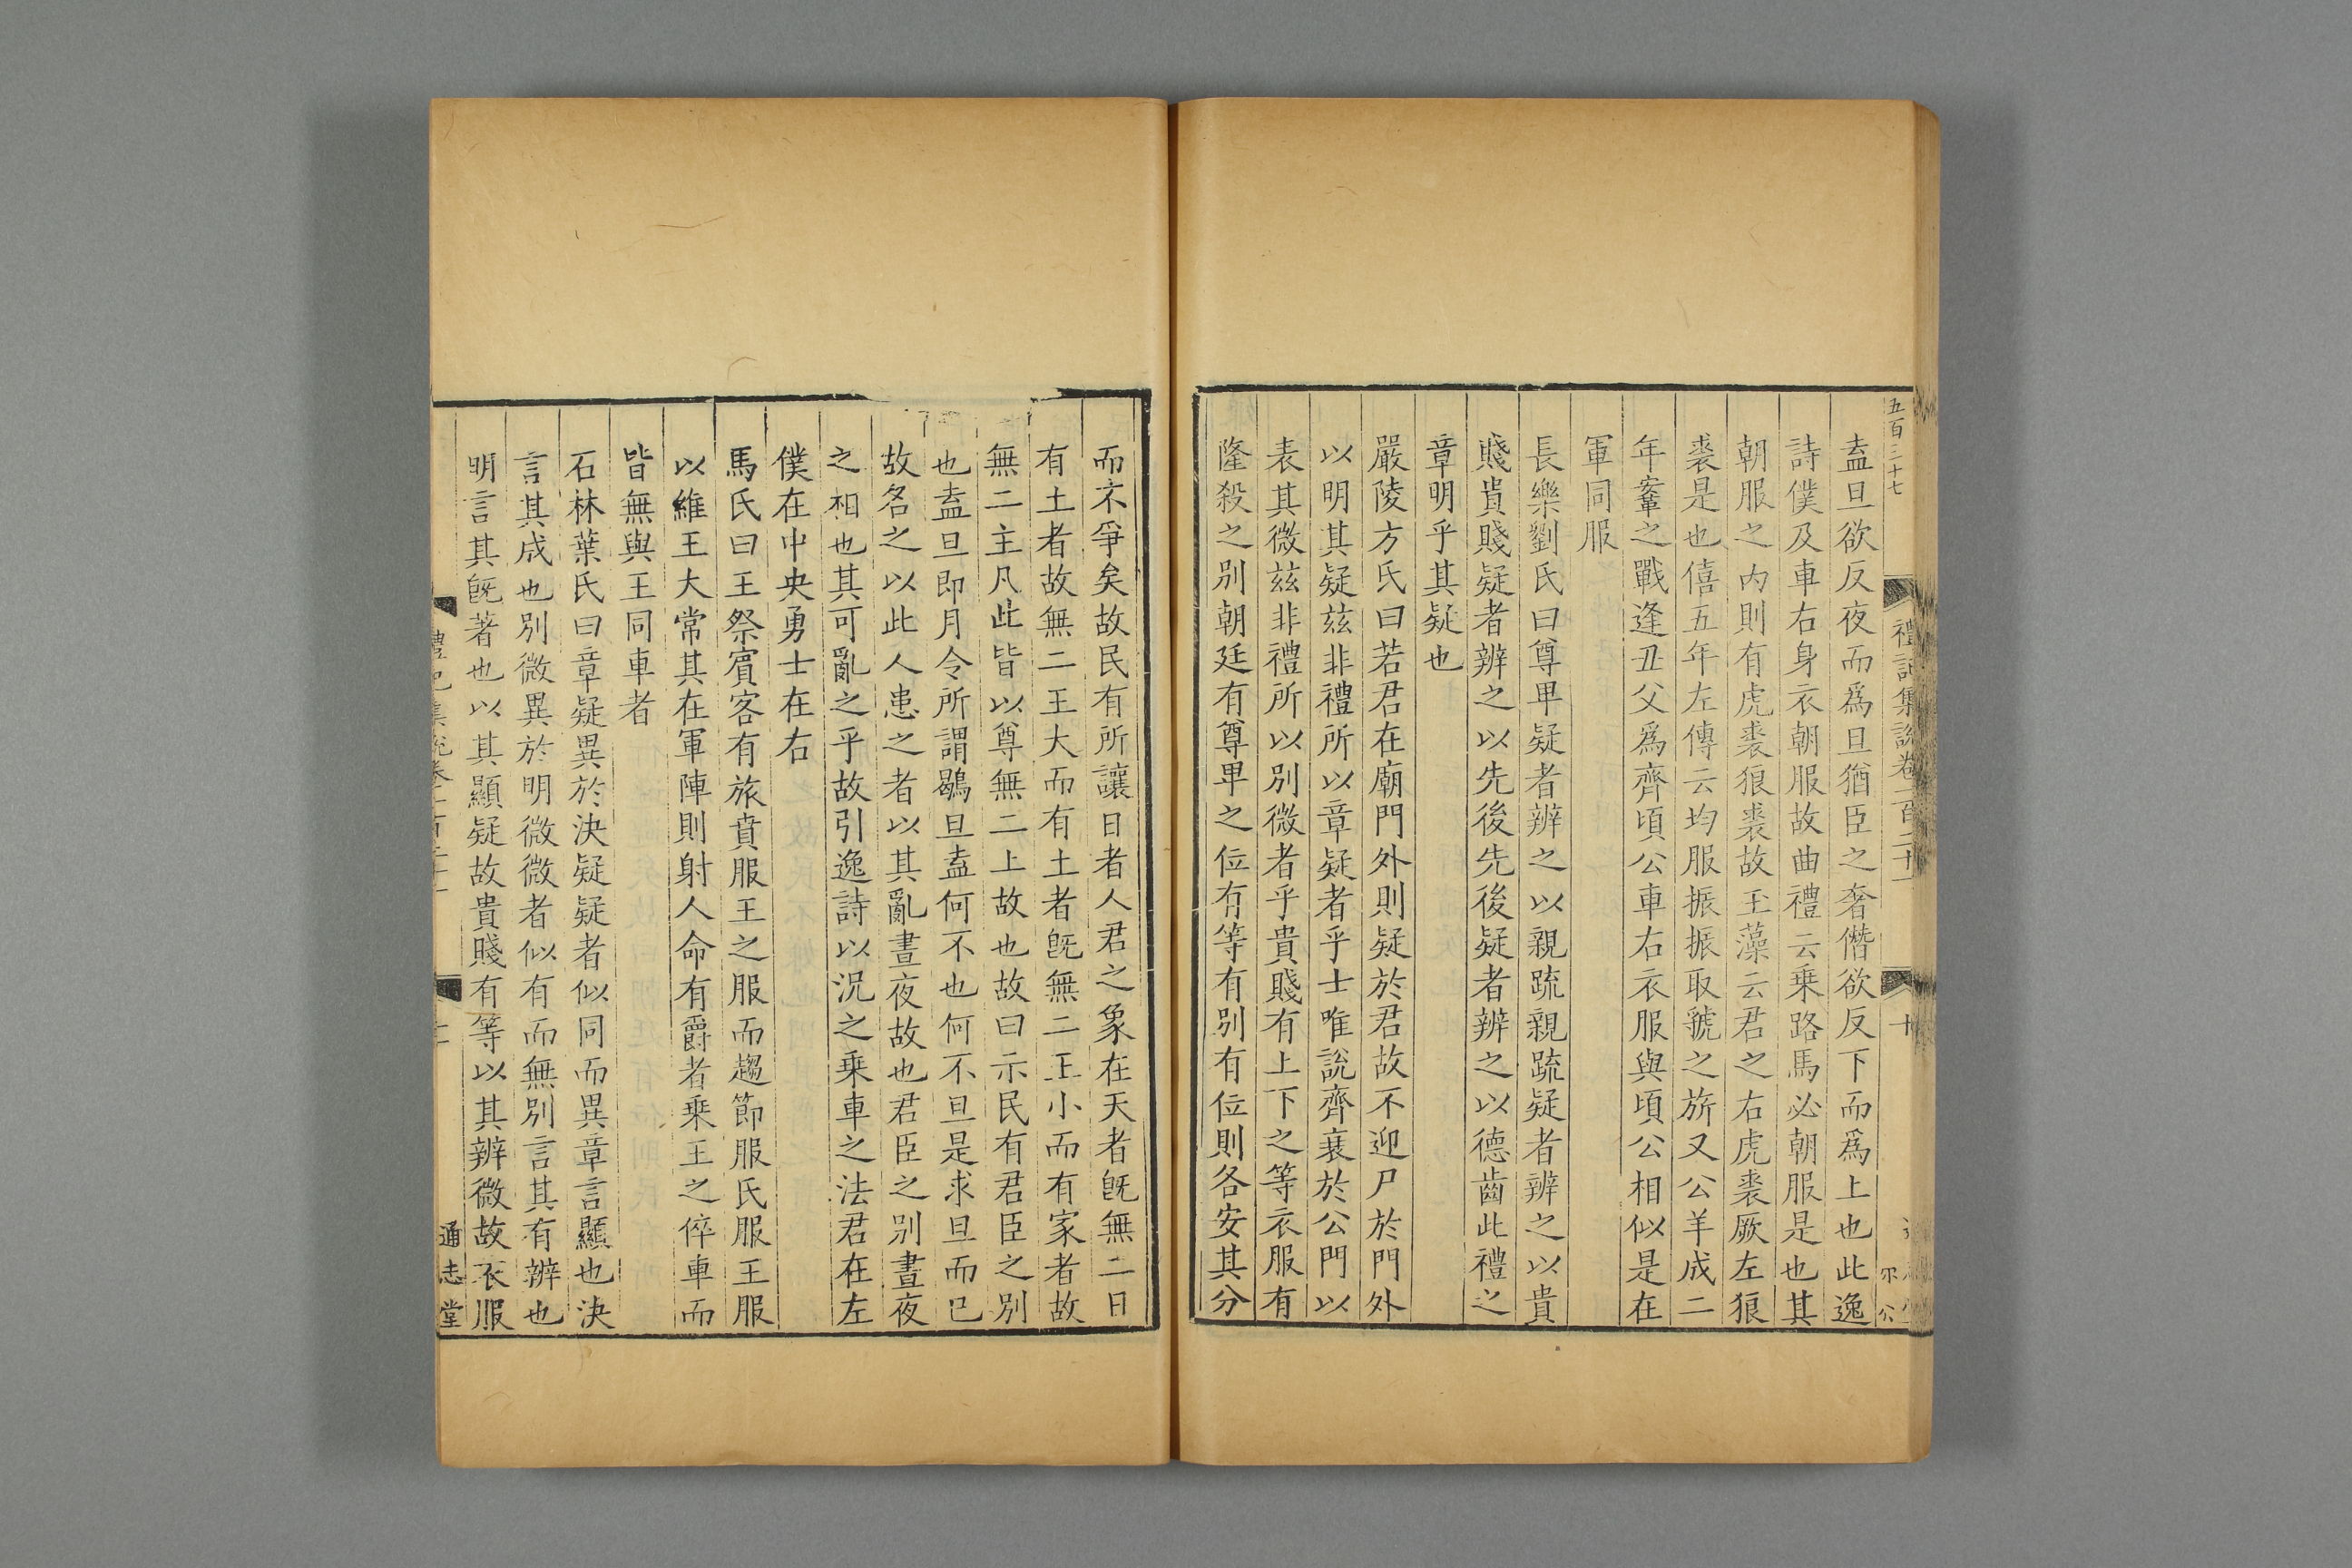 五百三十七
禮記集說卷一百二十一
十
盍旦欲反夜而爲旦猶臣之奢僭欲反下而爲上也此逸
詩僕及車右身衣朝服故曲禮云乗路馬必朝服是也其
朝服之内則有虎裘狼裘故玉藻云君之右虎裘厥左狼
裘是也僖五年左傳云均服振振取虢之旂又公羊成二
年鞌之戰逢丑父爲齊頃公車右衣服與頃公相似是在
軍同服
長樂劉氏曰尊卑疑者辨之以親疏親疏疑者辨之以貴
賤貴賤疑者辨之以先後先後疑者辨之以德齒此禮之
章明乎其疑也
嚴陵方氏曰若君在廟門外則疑於君故不迎尸於門外
以明其疑兹非禮所以章疑者乎士唯說齊衰於公門以
表其微兹非禮所以别微者乎貴賤有上下之等衣服有
隆殺之别朝廷有尊卑之位有等有别有位則各安其分
而不爭矣故民有所讓日者人君之象在天者旣無二日
有土者故無二王大而有土者旣無二王小而有家者故
無二主凡此皆以尊無二上故也故曰示民有君臣之别
也盍旦即月令所謂鶡旦盍何不也何不旦是求旦而已
故名之以此人患之者以其亂晝夜故也君臣之别晝夜
之相也其可亂之乎故引逸詩以況之乗車之法君在左
僕在中央勇士在右
馬氏曰王祭賓客有旅賁服王之服而趨節服氏服王服
以維王大常其在軍陣則射人命有爵者乗王之倅車而
皆無與王同車者
石林葉氏曰章疑異於決疑疑者似同而異章言顯也決
言其成也别微異於明微微者似有而無别言其有辨也
明言其旣著也以其顯疑故貴賤有等以其辨微故衣服
禮記集說卷一百二十一
通志堂